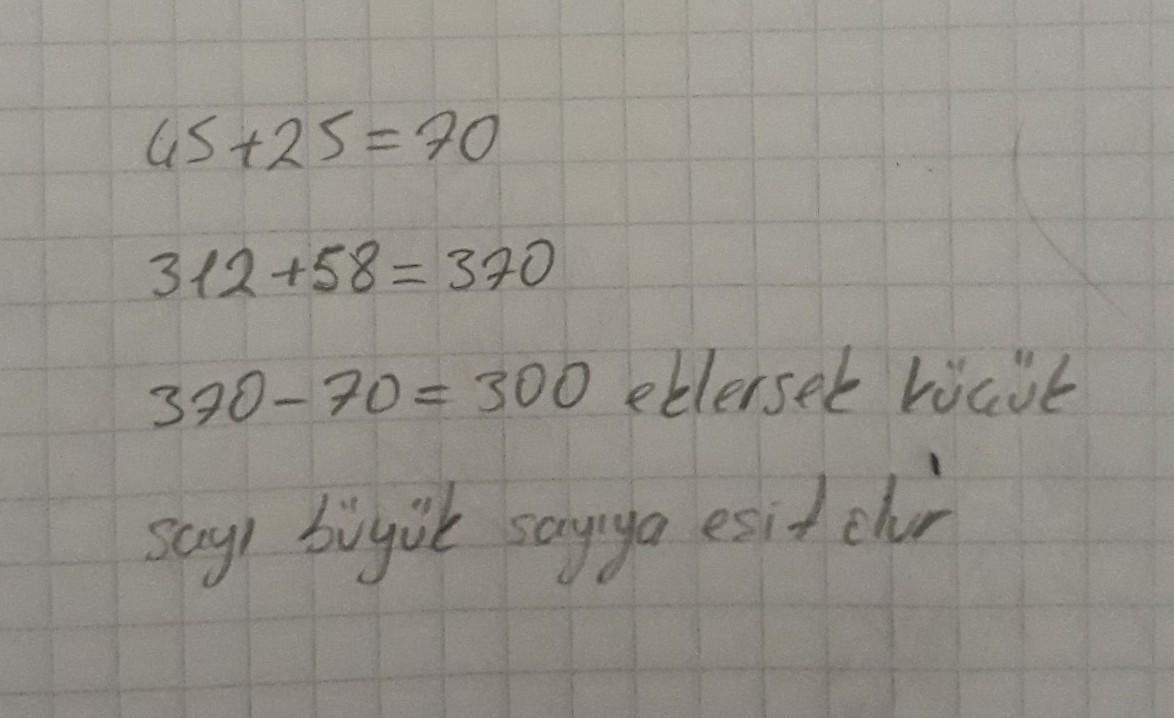 45+25=70
312+58=370
370-70=300 eklersek küçük
sayı büyük sayıya esit olur